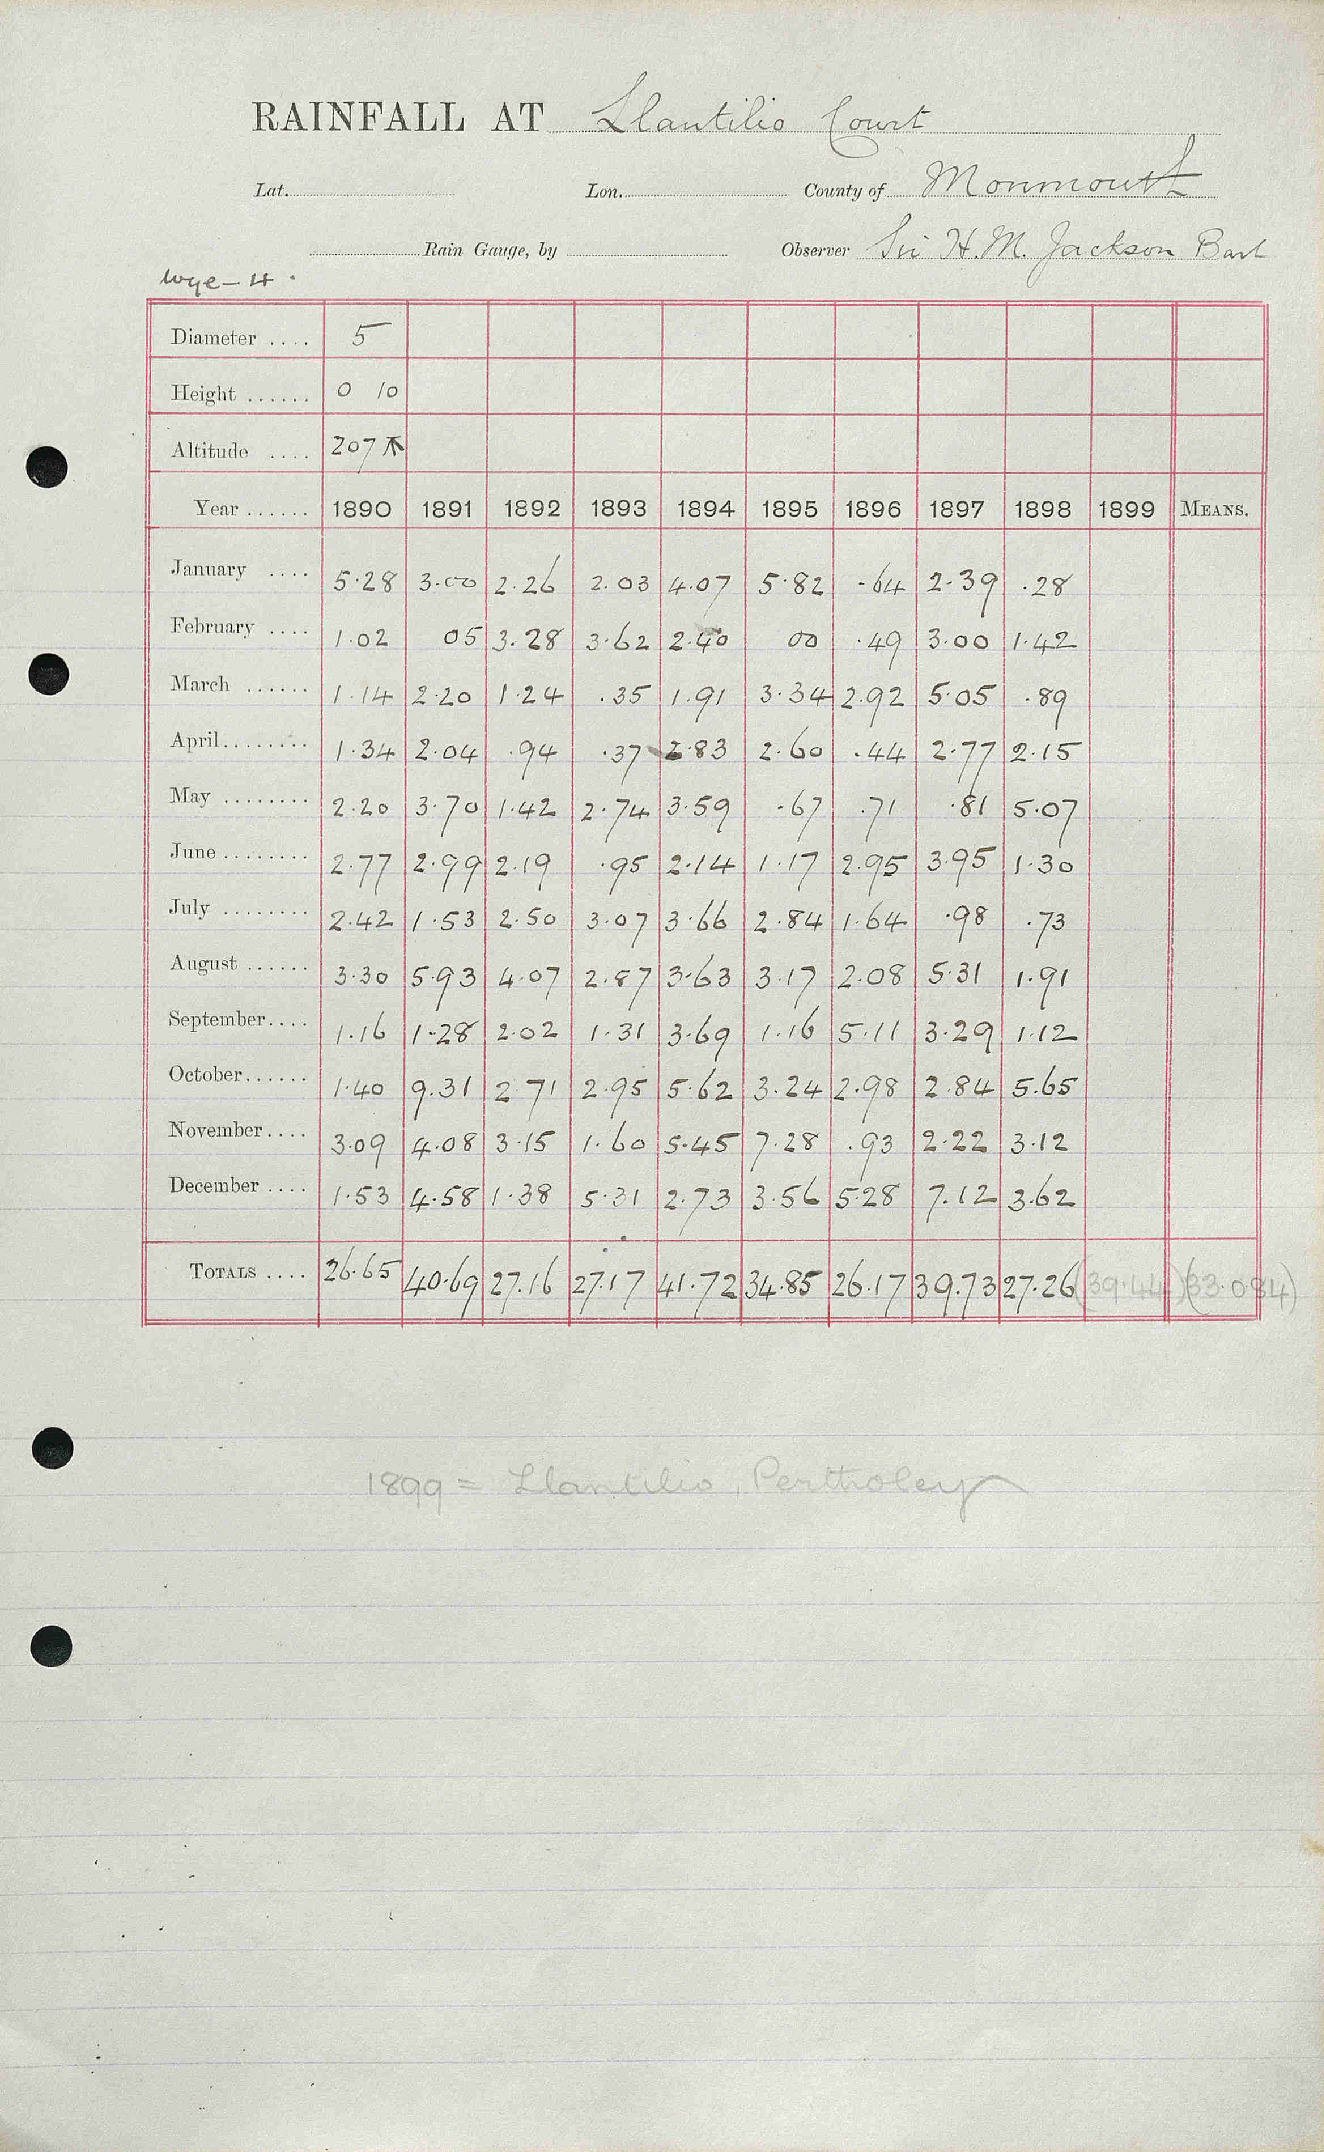 RAINFALL AT Llantilio Court
Lat. Lon. County of Monmouth
Rain Gauge, by Observer Sir H. M. Jackson Bart
Wye - 4.
Diameter .... 5
Height ...... 0 10
Altitude .... 207
Year ...... 1890 1891 1892 1893 1894 1895 1896 1897 1898 1899 MEANS.
January .... 5.28 3.00 2.26 2.03 4.07 5.82 .64 2.39 .28
February .... 1.02 05 3.28 3.62 2.40 00 .49 3.00 1.42
March ...... 1.14 2.20 1.24 .35 1.91 3.34 2.92 5.05 .89
April........ 1.34 2.04 .94 .37 2.83 2.60 .44 2.77 2.15
May ........ 2.20 3.70 1.42 2.74 3.59 .67 .71 .81 5.07
June ........ 2.77 2.99 2.19 .95 2.14 1.17 2.95 3.95 1.30
July ........ 2.42 1.53 2.50 3.07 3.66 2.84 1.64 .98 .73
August ...... 3.30 5.93 4.07 2.87 3.63 3.17 2.08 5.31 1.91
September.... 1.16 1.28 2.02 1.31 3.69 1.16 5.11 3.29 1.12
October...... 1.40 9.31 2.71 2.95 5.62 3.24 2.98 2.84 5.65
November.... 3.09 4.08 3.15 1.60 5.45 7.28 .93 2.22 3.12
December .... 1.53 4.58 1.38 5.31 2.73 3.56 5.28 7.12 3.62
TOTALS .... 26.65 40.69 27.16 27.17 41.72 34.85 26.17 39.73 27.26 (39.44) (33.084)
1899 = Llantilio, Pertholey